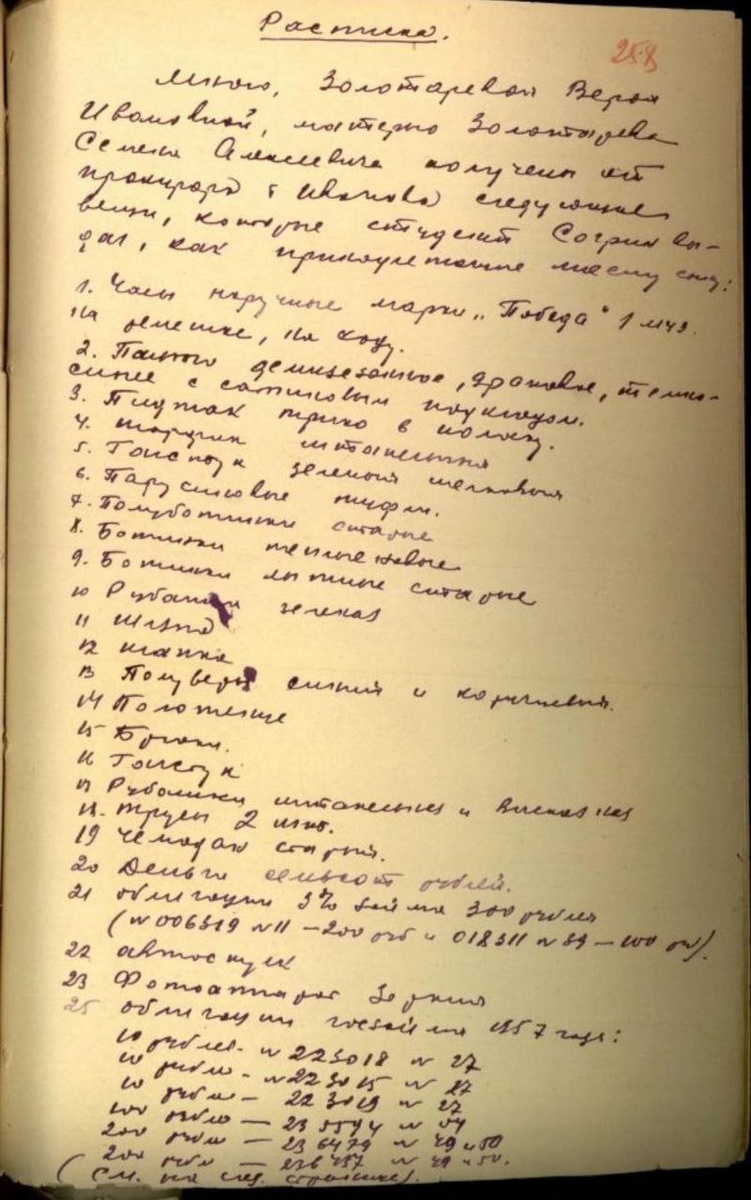 Расписка.
258
Мною, Золотаревой Верой
Ивановной, матерью Золотарева
Семена Алексеевича получены от
прокурора т Иванова следующие
вещи, которые студент Согрин вы-
дал, как принадлежащие моему сыну:
1. Часы наручные марки „Победа" 1 шт.
на ремешке, на ходу.
2. Пальто демисезонное, драповое, темно-
синее с сатиновым подкладом.
3. Пиджак трико в полоску.
4. шаровары штапельные
5. Галстук зеленый шелковый
6. Парусиновые туфли.
7. Полуботинки старые
8. Ботинки теплые новые
9. Ботинки лыжные старые
10 Рубашка зеленая
11 Шляпа
12 шапка
13 Полувера синий и коричневый.
14 Полотенце
15 Брюки.
16 Галстук
17 Рубашки штапельная и вискозная
18. трусы 2 шт.
19 чемодан старый.
20 Деньги семьсот рублей.
21 облигации 3% займа 300 рублей
(№ 006319 № 11 – 200 руб и 018311 № 39 – 100 руб).
22
23 Фотоаппарат Зоркий
25 облигации госзайма 1957 года:
10 рублей - № 223018 № 27
10 рублей - № 223015 № 27
10 рубле - 223019 № 27
100 рубле — № 04
200 рубле — 236479 № 49 и 50
200 рубле — 236457 № 49 и 50.
(См. на след. странице).